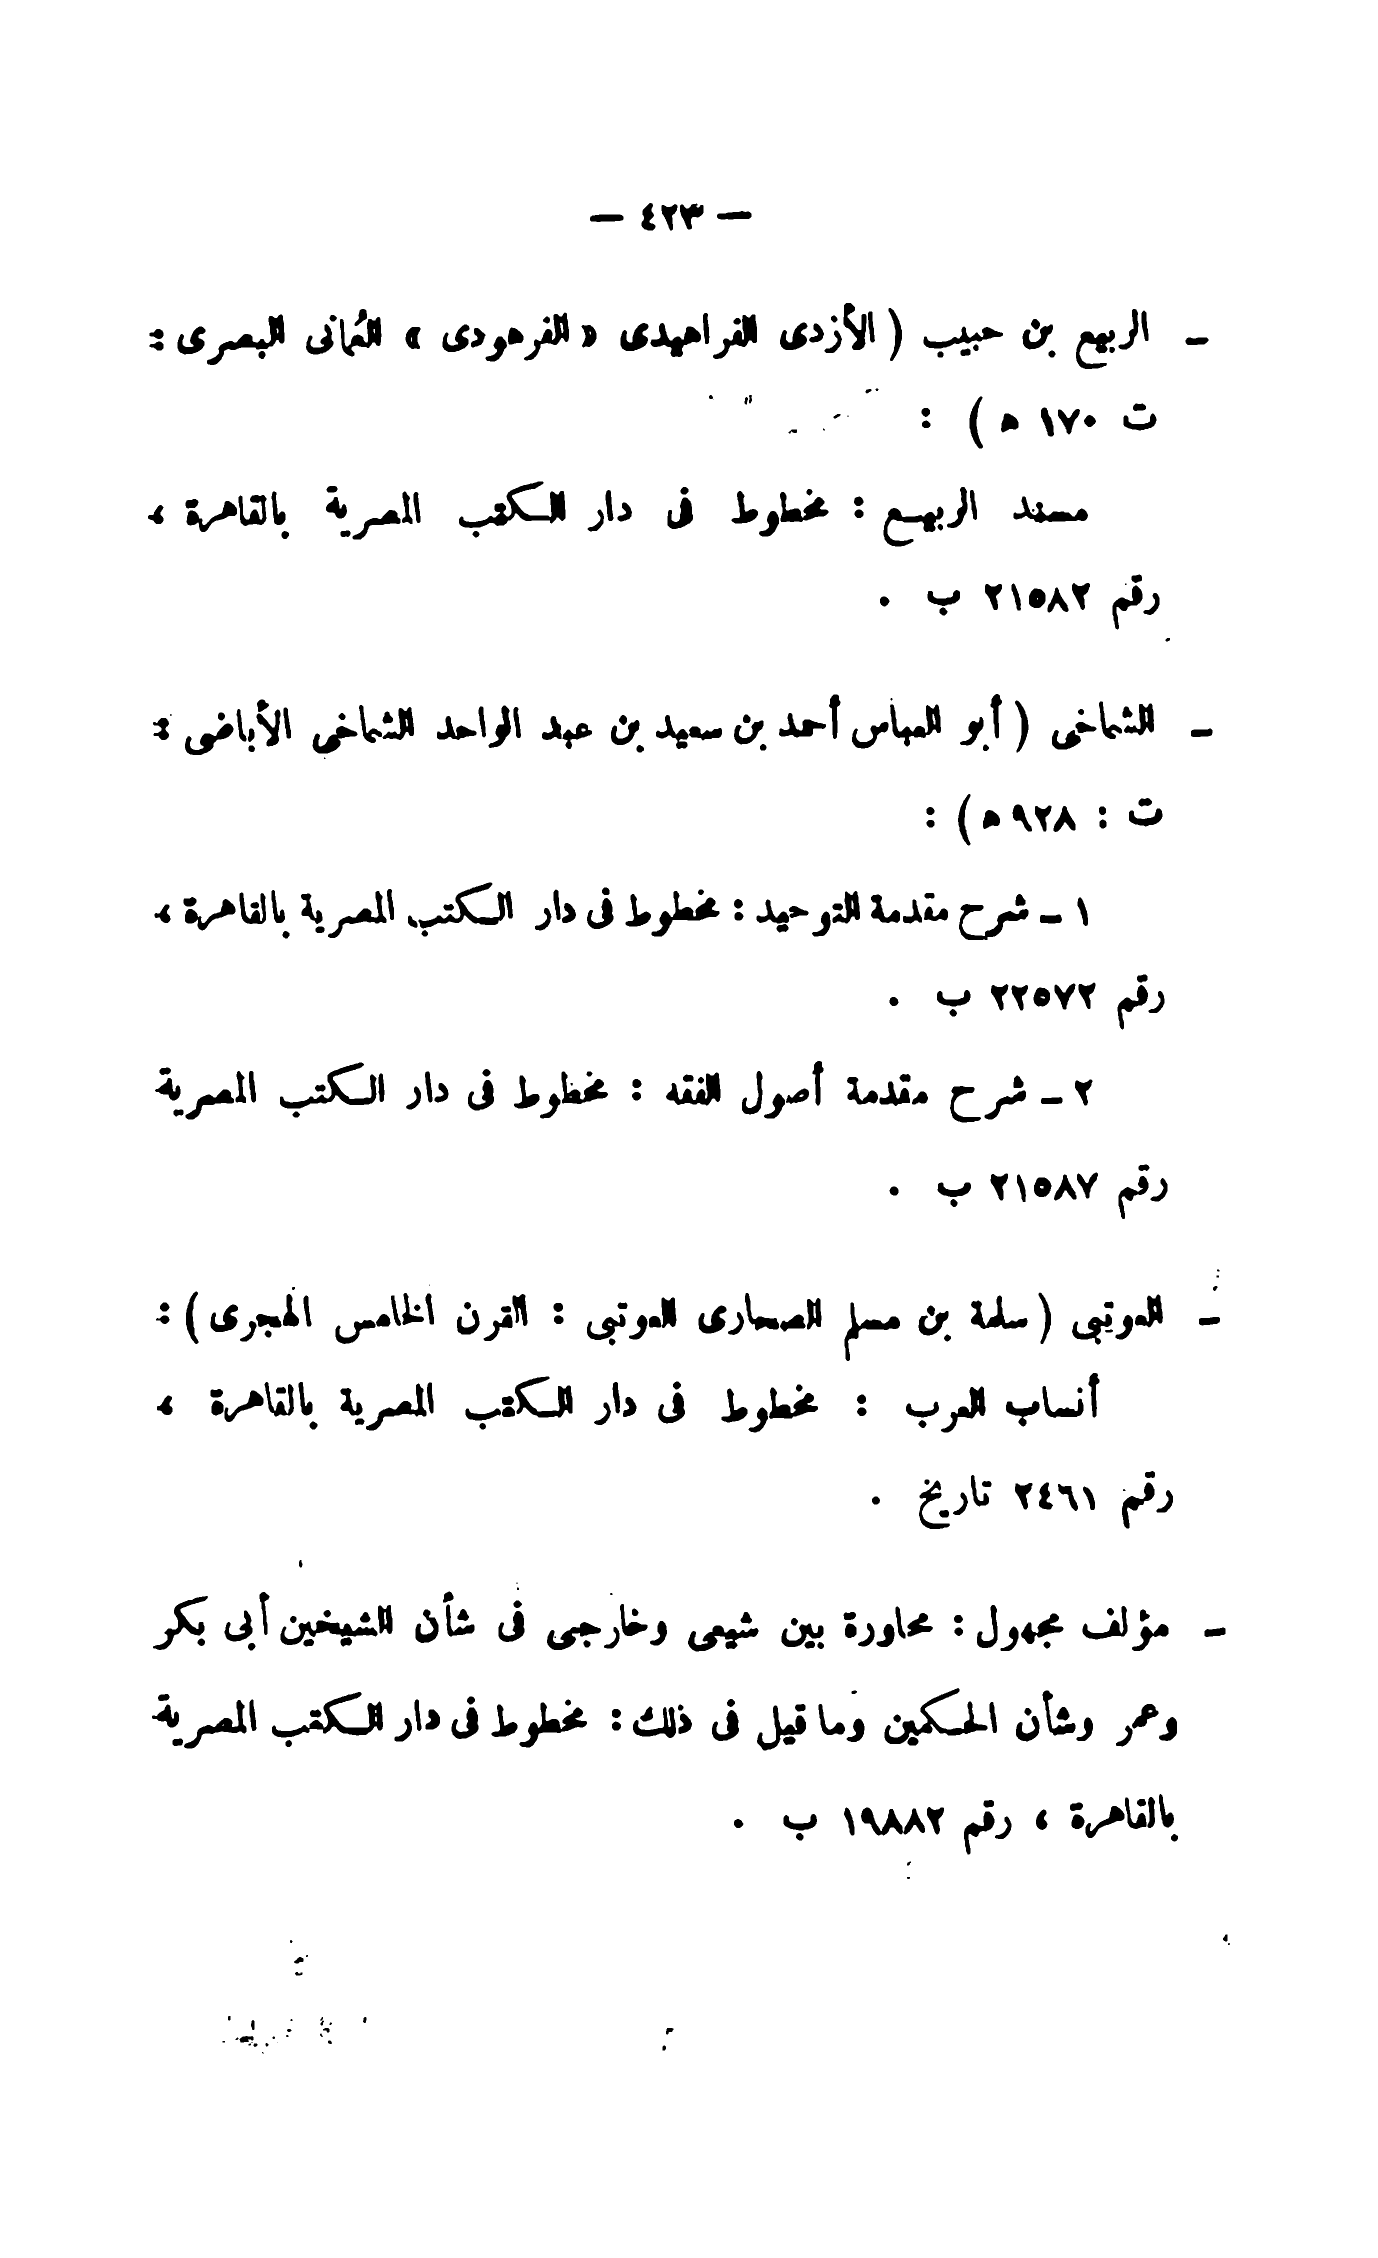 — ٤٢٣ —
ـ الربيع بن حبيب ( الأزدى الفراهيدى « الفرهودى » العُمانى البصرى :
ت ١٧٠ ه ) :
مسند الربيع : مخطوط فى دار الكتب المصرية بالقاهرة ،
رقم ٢١٥٨٢ ب .
ـ الشماخى ( أبو العباس أحمد بن سعيد بن عبد الواحد الشماخى الأباضى :
ت : ٩٢٨ ه ) :
١ ـ شرح مقدمة التوحيد : مخطوط فى دار الكتب المصرية بالقاهرة ،
رقم ٢٢٥٧٢ ب .
٢ ـ شرح مقدمة أصول الفقه : مخطوط فى دار الكتب المصرية
رقم ٢١٥٨٧ ب .
ـ العوتبى ( سلمة بن مسلم الصحارى العوتبى : القرن الخامس الهجرى ) :
أنساب العرب : مخطوط فى دار الكتب المصرية بالقاهرة ،
رقم ٢٤٦١ تاريخ .
ـ مؤلف مجهول : محاورة بين شيعى وخارجى فى شأن الشيخين أبى بكر
وعمر وشأن الحكمين وما قيل فى ذلك : مخطوط فى دار الكتب المصرية
بالقاهرة ، رقم ١٩٨٨٢ ب .